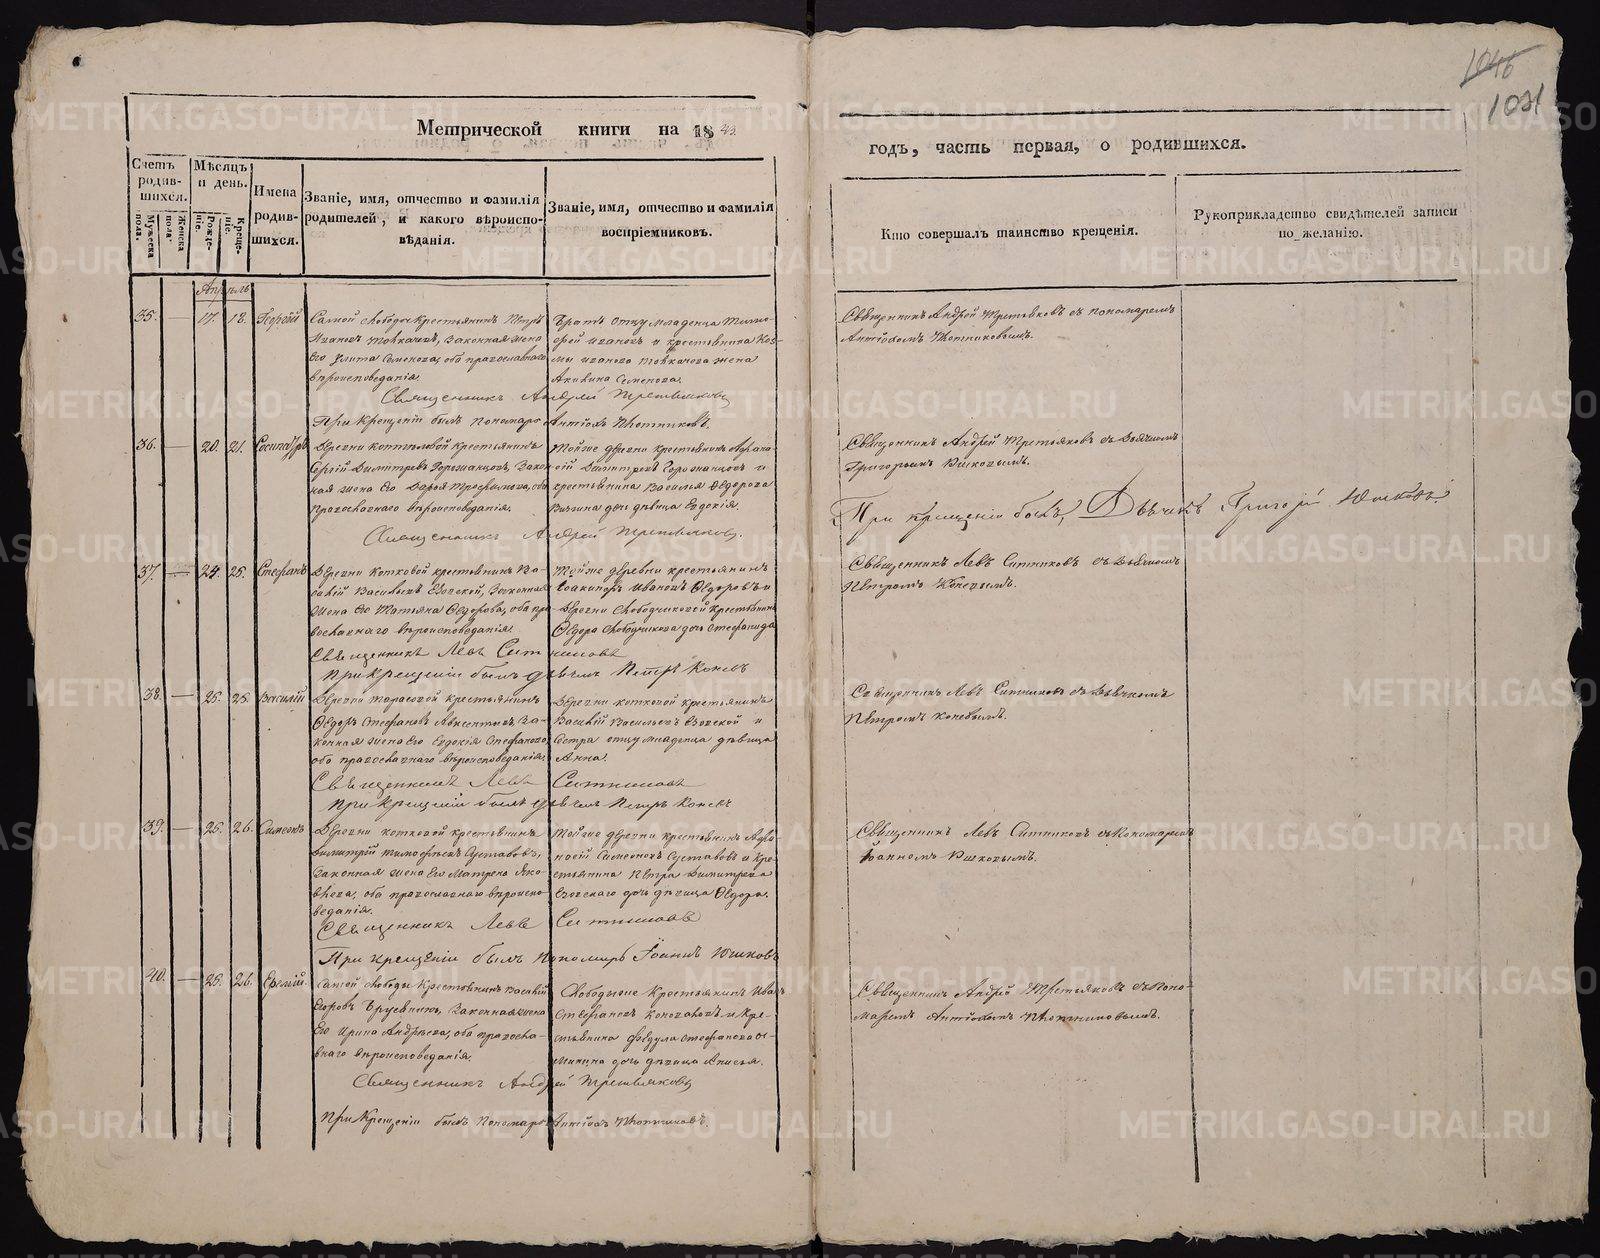 1046
1021
Метрической книги на 18
годъ, часть первая, о родившихся.
Счетъ родившихся.
Мужеска пола.
Женска пола.
Мѣсяцъ и день.
Рожденіе.
Крещеніе.
Имена родившихся.
Званіе, имя, отчество и фамилія родителей, и какого вѣроисповѣданія.
Званіе, имя, отчество и фамилія воспріемниковъ.
Кто совершалъ таинство крещенія.
Рукоприкладство свидѣтелей записи по желанію.
Апрѣль
35. — 17. 18. Георгій
Самой слободы крестьянинъ Петръ
Ивановъ Толкачевъ, законная жена
его Улита Семенова, оба православнаго
вѣроисповеданія.
Братъ отцу младенца Тимо-
фей Ивановъ и крестьянина Коз-
мы Иванова Толкачева жена
Акилина Семенова.
Священникъ Андрей Третьяковъ съ пономаремъ
Антіохомъ Плотниковымъ.
Священникъ Андрей Третьяковъ
При крещеніи былъ пономарь Антіохъ Плотниковъ.
36. — 20. 21.
Деревни крестьянинъ
Сергій Димитріевъ закон-
ная жена его Дарья Трофимова, оба
православнаго вѣроисповеданія.
Тойже деревни крестьянинъ Афана-
сій Димитріевъ и
крестьянина Василья Ѳедорова
дочь дѣвица Евдокія.
Священникъ Андрей Третьяковъ съ дьячкомъ
Григорьемъ Юшковымъ.
При крещеніи былъ Дьячекъ Григорій Юшковъ
Священникъ Андрей Третьяковъ.
37. — 24. 25. Стефанъ
Деревни Котковой крестьянинъ Ва-
силій Васильевъ законная
жена его Татьяна Ѳедорова, оба пра-
вославнаго вѣроисповеданія.
Тойже деревни крестьянинъ
Ивановъ Ѳедоровъ и
деревни Слободчиковой крестьянина
Ѳедора Слободчикова дочь Стефанида
Священникъ Левъ Ситниковъ съ дьячкомъ
Петромъ Коневымъ.
Священникъ Левъ Ситниковъ
При крещеніи былъ дьячекъ Петръ Коневъ
38. — 25. 25. Василій
Деревни Тарасовой крестьянинъ
Ѳедоръ Стефановъ за-
конная жена его Евдокія Стефанова,
оба православнаго вѣроисповеданія.
Деревни Котковой крестьянинъ
Василій Васильевъ и
сестра отцу младенца дѣвица
Анна.
Священникъ Левъ Ситниковъ съ дьячкомъ
Петромъ Коневымъ.
Священникъ Левъ Ситниковъ
При крещеніи былъ дьячекъ Петръ Коневъ
39. — 25. 26. Симеонъ
Деревни Котковой крестьянинъ
Димитрій Тимофеевъ Суставовъ,
законная жена его Матрена Яко-
влева, оба православнаго вѣроиспо-
веданія.
Тойже деревни крестьянинъ Афа-
насій Симеоновъ Суставовъ и кре-
стьянина Петра Димитріева
дочь дѣвица Ѳедора.
Священникъ Левъ Ситниковъ съ пономаремъ
Іоанномъ Юшковымъ.
Священникъ Левъ Ситниковъ
При крещеніи былъ пономарь Іоаннъ Юшковъ
40. — 25. 26.
Самой слободы крестьянинъ Василій
Егоровъ Брусенинъ, законная жена
его Ирина Андреева, оба правосла-
внаго вѣроисповеданія.
Слободские крестьянинъ Иванъ
Стефановъ Коноваловъ и кре-
стьянина Федула Стефанова
дочь дѣвица Анисья.
Священникъ Андрей Третьяковъ съ поно-
маремъ Антіохомъ Плотниковымъ.
Священникъ Андрей Третьяковъ
При крещеніи былъ пономарь Антіохъ Плотниковъ.
METRIKI.GASO-URAL.RU